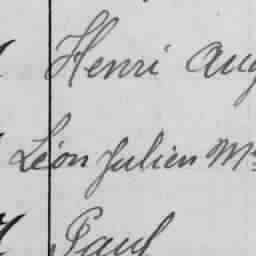 Henri Aug
Léon Julien M
Paul